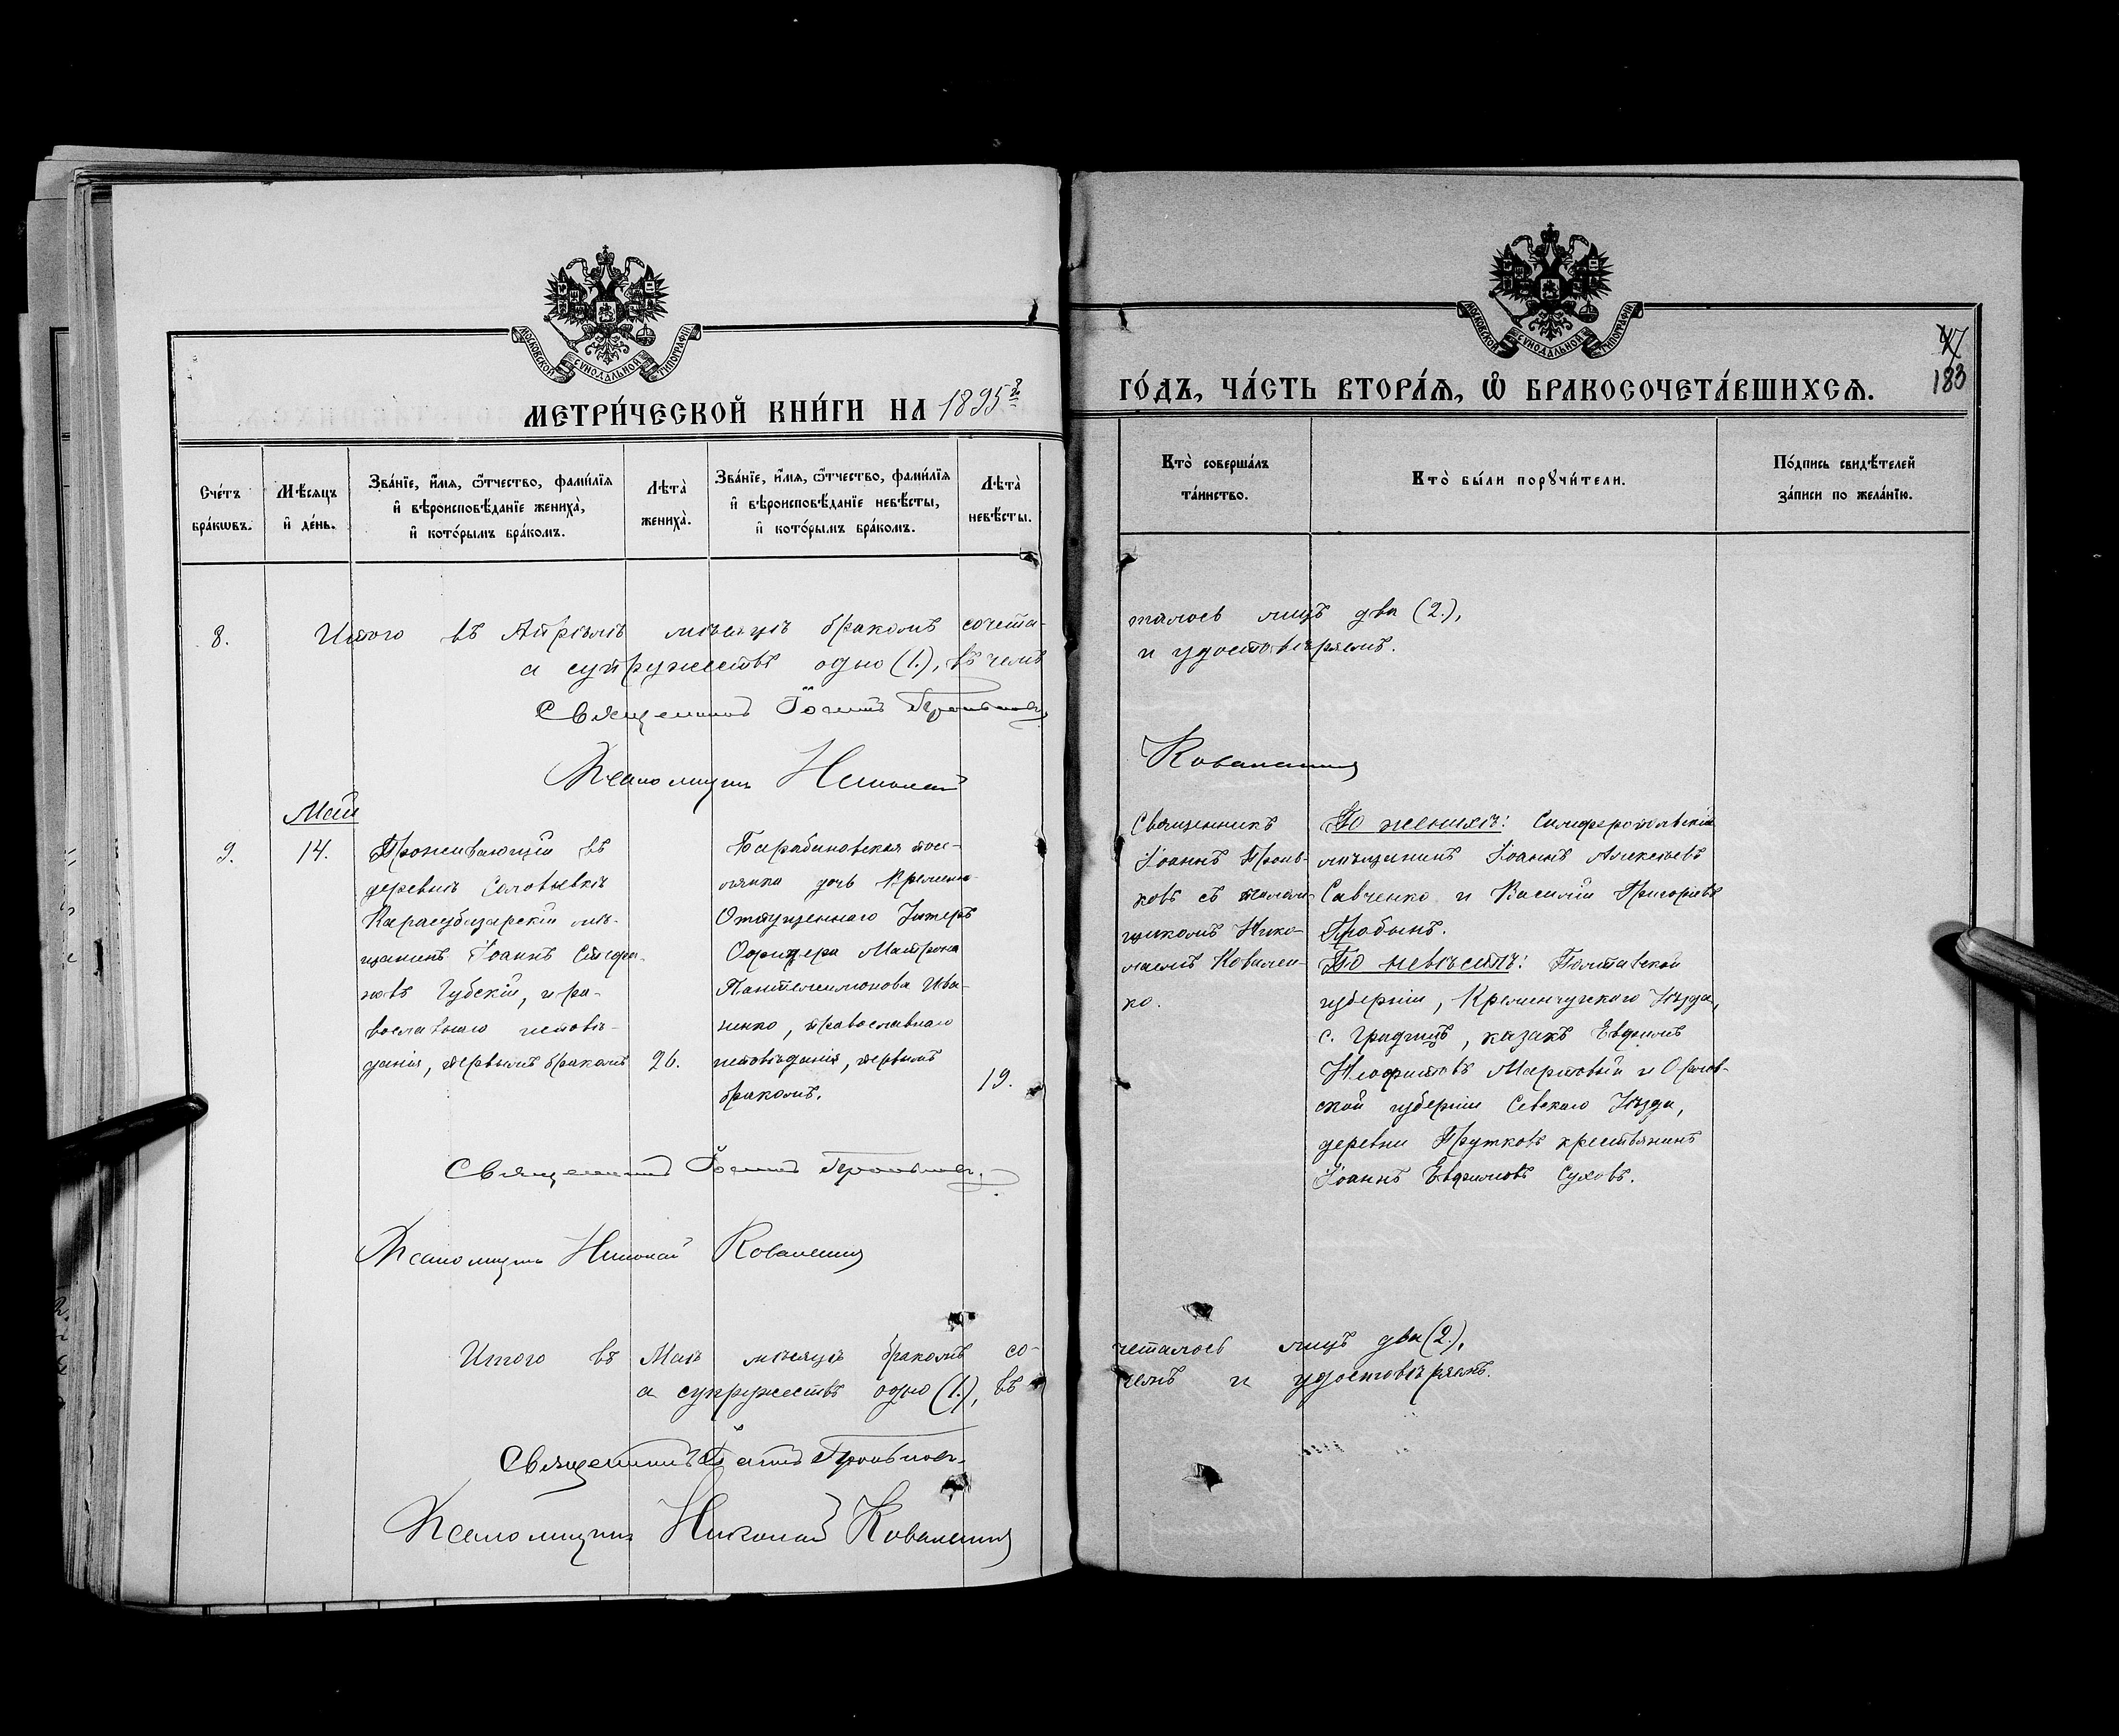 МОСКОВСКОЙ СУНОДАЛЬНОЙ ТИПОГРАФІИ
МЕТРИ́ЧЕСКОЙ КНИ́ГИ НА 1895й
Сче́тъ бра́кѡвъ.
Мѣ́сяцъ и҆ де́нь.
Зва́нїе, и҆́мя, ѻ҆́тчество, фами́лїя и҆ вѣроисповѣ́данїе жениха̀, и҆ кото́рымъ бра́комъ.
Лѣта̀ жениха̀.
Зва́нїе, и҆́мя, ѻ҆́тчество, фами́лїя и҆ вѣроисповѣ́данїе невѣ́сты, и҆ кото́рымъ бра́комъ.
Лѣта̀ невѣ́сты.
8. Итого въ Апрѣлѣ мѣсяцѣ бракомъ сочета-
а супружествъ одно (1.), въ чемъ
Священникъ Іоаннъ
Псаломщикъ Николай
Май
9. 14.
Проживающій въ
деревнѣ Соловьевкѣ
Карасубазарскій мѣ-
щанинъ Іоаннъ Стефа-
новъ Губскій, пра-
вославнаго исповѣ-
данія, первымъ бракомъ
26.
Барабановская посе-
лянка дочь Времен-
Отпущеннаго Унтеръ
Офицера Матрона
Пантелеимонова Ива-
ненко, православнаго
исповѣданія, первымъ
бракомъ.
19.
Священникъ Іоаннъ
Псаломщикъ Николай Коваленко
Итого въ Маѣ мѣсяцѣ бракомъ со-
а супружествъ одно (1.), въ
Священникъ Іоаннъ
Псаломщикъ Николай Коваленко
МОСКОВСКОЙ СУНОДАЛЬНОЙ ТИПОГРАФІИ
47
183
ГО́ДЪ, ЧА́СТЬ ВТОРА́Я, Ѡ҆ БРАКОСОЧЕТА́ВШИХСЯ.
Кто̀ соверша́лъ та́инство.
Кто̀ бы́ли порꙋчи́тели.
По́дпись свидѣ́телей за́писи по жела́нїю.
талось лицъ два (2.),
и удостовѣряемъ.
Коваленко
Священникъ
Іоаннъ
ковъ съ псалом-
щикомъ Нико-
лаемъ Ковален-
ко.
По женихѣ: Симферопольскій
мѣщанинъ Іоаннъ Алексѣевъ
Савченко и Василій Григорьевъ
По невѣстѣ: Полтавской
губерніи, Кременчугскаго Уѣзда,
с. Градижъ, казакъ Евфимъ
Неофитовъ Мартовый и Орлов-
ской губерніи Севскаго Уѣзда,
деревни Прутковъ крестьянинъ
Іоаннъ Евфимовъ Суховъ.
четалось лицъ два (2.),
чемъ и удостовѣряемъ.